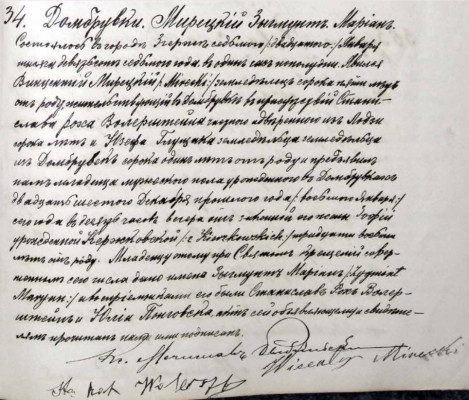 34. Домбрувки. Мирецкій Зыгмунтъ Маріанъ.
Состоялось въ городѣ Згержѣ седьмого /двадцатаго/ Января
тысяча девятьсотъ седьмого года, въ одинъ часъ пополудни. Явился
Винцентій Мирецкій /Mirecki/ земледѣлецъ сорока пяти лѣтъ
отъ роду жительствующій въ Домбрувкѣ въ присутствіи Стани-
слава Роха Волерштейна изъ Лодзи
сорока лѣтъ и Юзефа земледѣльца
изъ Домбрувекъ сорока одинъ лѣтъ отъ роду и предъявилъ
намъ младенца мужескаго пола урожденного въ Домбрувкахъ
двадцать шестого Декабря прошлаго года /восьмого Января/
сего года въ десять часовъ вечера отъ законной его жены Зофіи
урожденной тридцати восьми
лѣтъ отъ роду. Младенцу этому при Святомъ Крещеніи совер-
шенномъ сего числа дано имена Зыгмунтъ Маріанъ /Zygmunt
Maryan/ а воспріемниками его были Станиславъ Рохъ Волер-
штейнъ и Юлія актъ сей объявляющему и свидѣте-
лямъ прочитанъ нами подписанъ.
Wincenty Mirecki
St. Roch